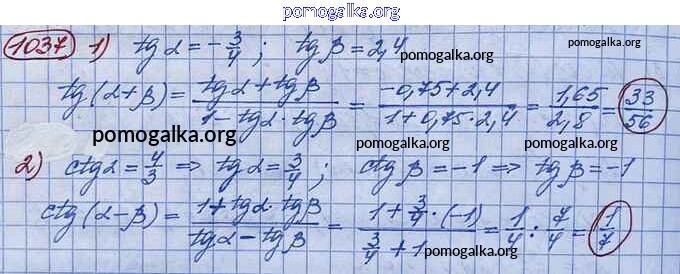 pomogalka.org
1037 1) tg α = -3/4 ; tg β = 2,4
pomogalka.org
tg(α+β) = (tg α + tg β)/(1 - tg α · tg β) = (-0,75+2,4)/(1+0,75·2,4) = 1,65/2,8 = 33/56
pomogalka.org
2) ctg α = 4/3 ⇒ tg α = 3/4 ; ctg β = -1 ⇒ tg β = -1
ctg(α-β) = (1+tg α · tg β)/(tg α - tg β) = (1 + 3/4 · (-1))/(3/4 + 1) = 1/4 : 7/4 = 1/7
pomogalka.org